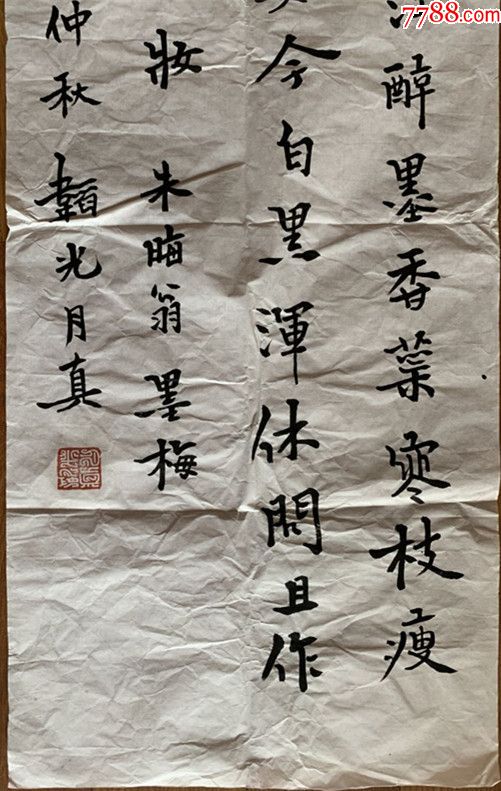 7788.com
醉墨香蕊寒枝瘦
今白黑渾休問且作
妝 朱晦翁墨梅
仲秋 韜光月真